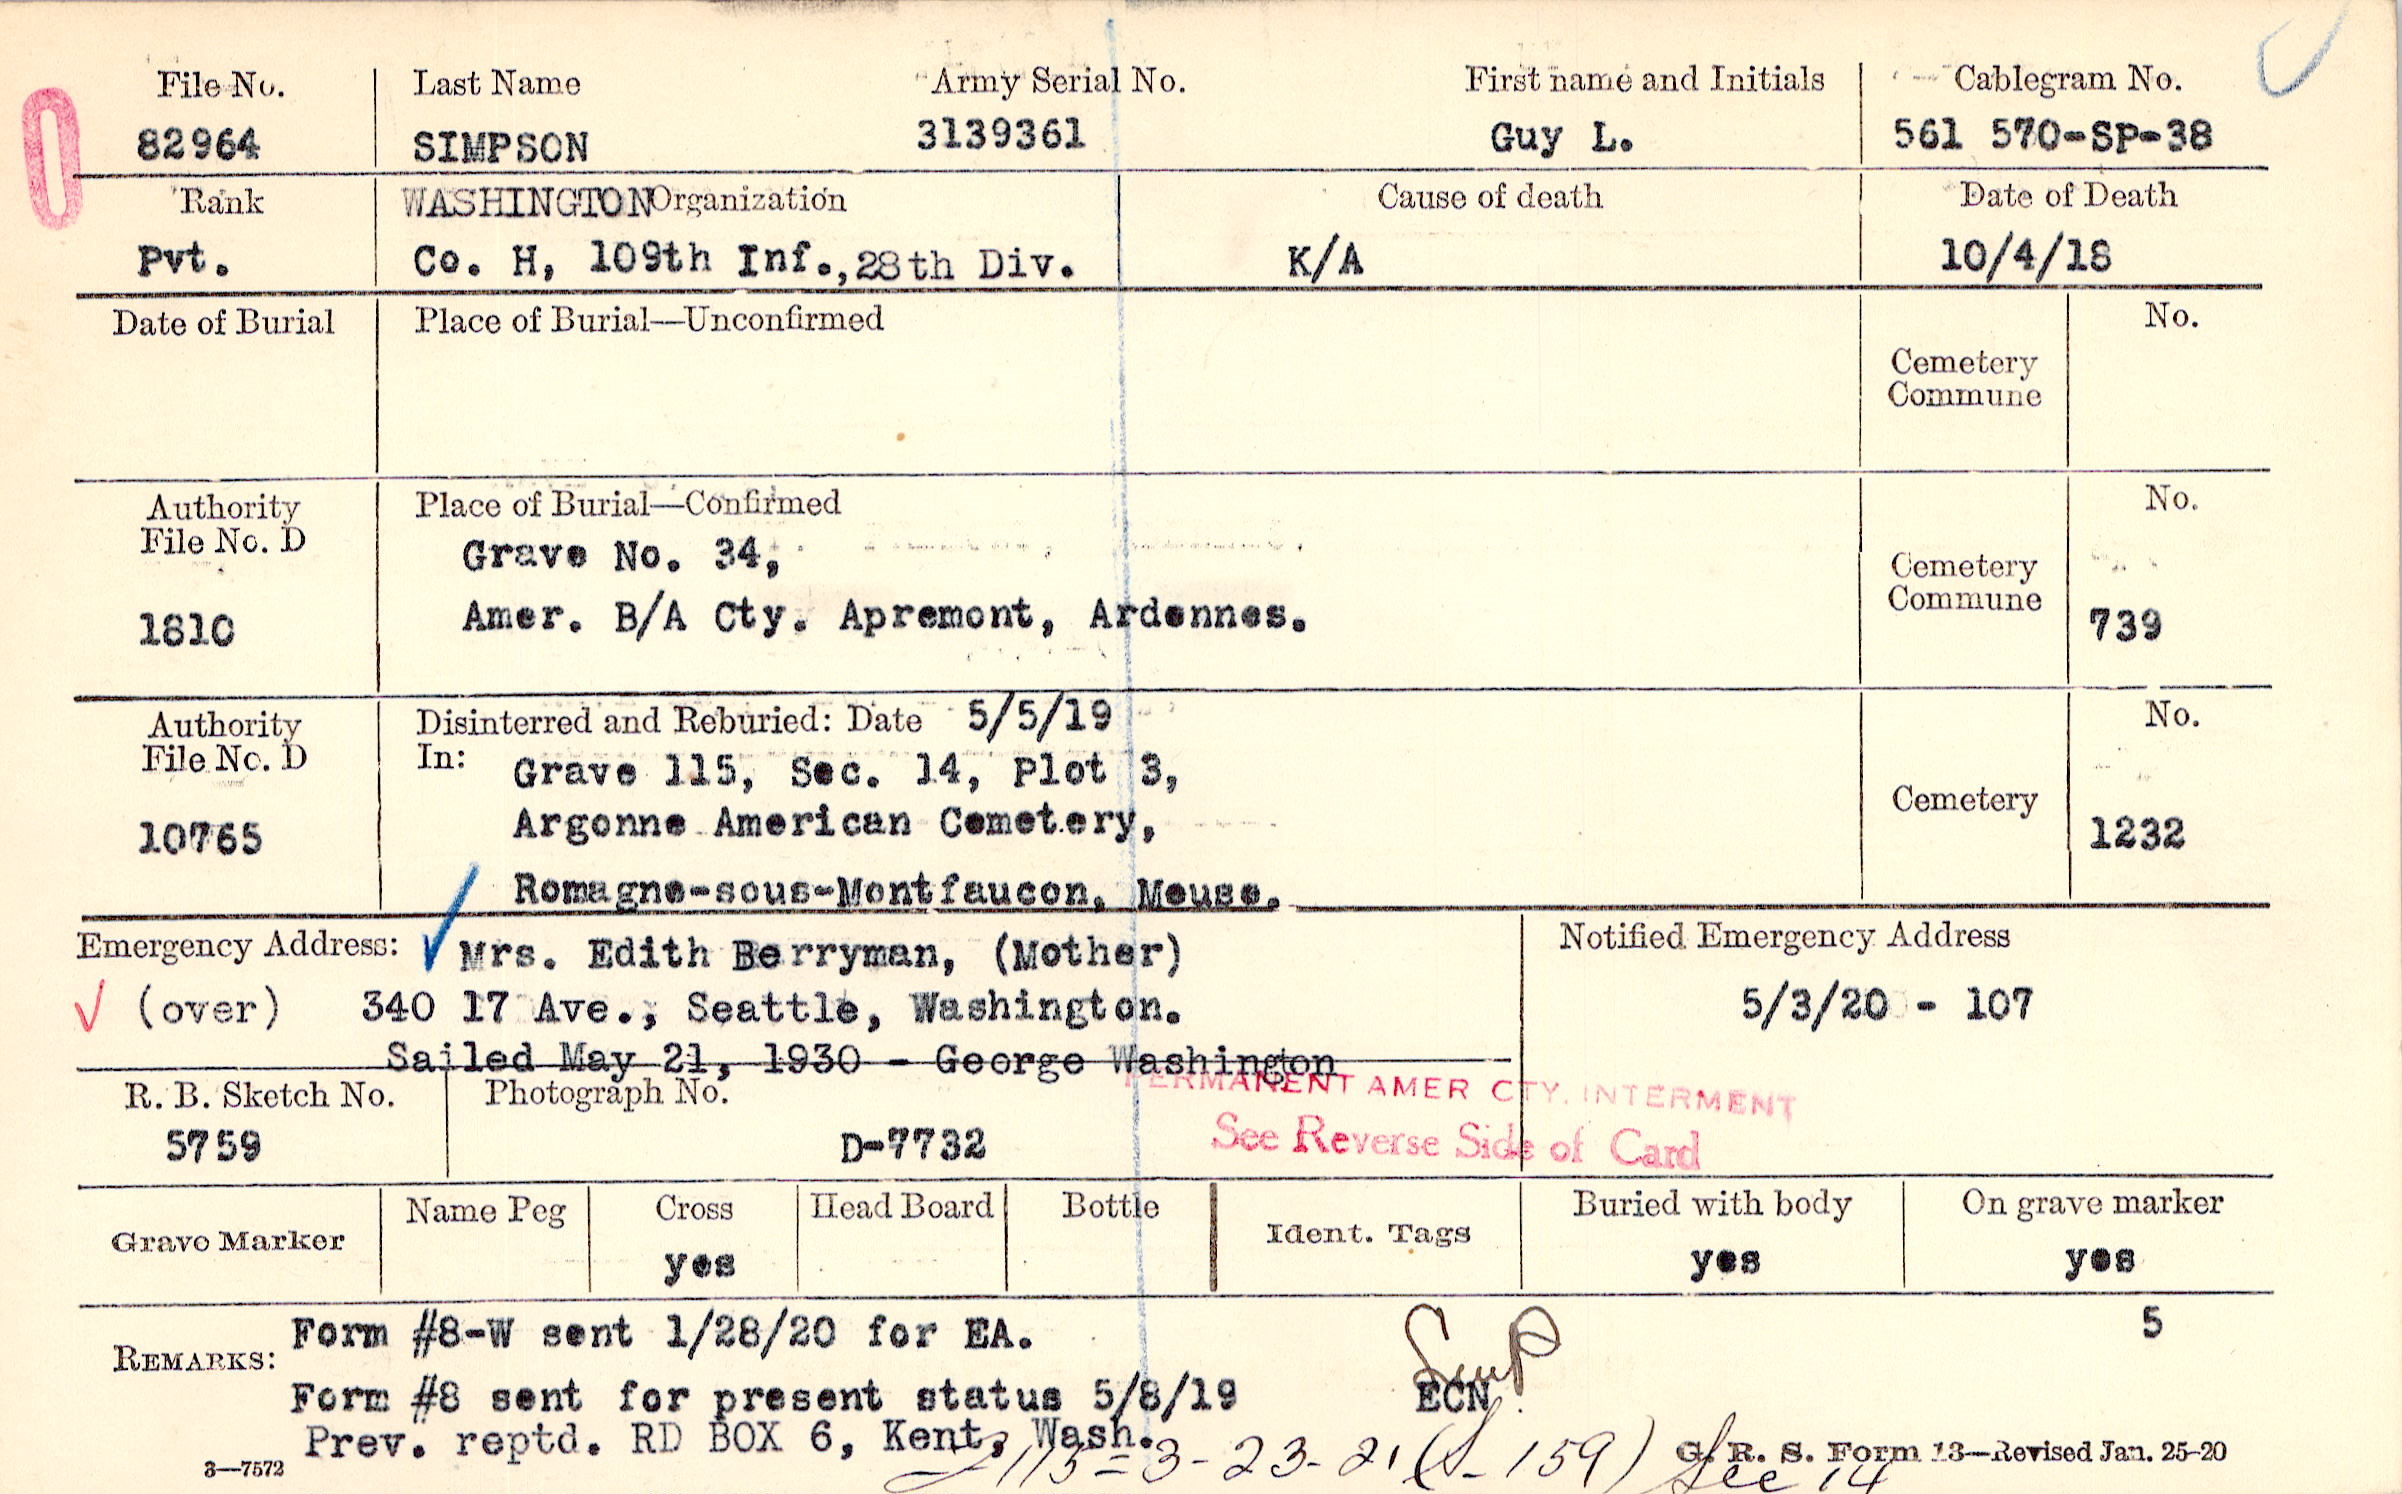 File No. Last Name Army Serial No. First name and Initials Cablegram No.
82964 SIMPSON 3139361 Guy L. 561 570-SP-38
Rank WASHINGTON Organization Cause of death Date of Death
Pvt. Co. H, 109th Inf., 28th Div. K/A 10/4/18
Date of Burial Place of Burial—Unconfirmed No.
Cemetery
Commune
Authority Place of Burial—Confirmed No.
File No. D
Grave No. 34,
Cemetery
Commune
1810 Amer. B/A Cty. Apremont, Ardennes. 739
Authority Disinterred and Reburied: Date 5/5/19 No.
File No. D In: Grave 115, Sec. 14, Plot 3,
Cemetery
10765 Argonne American Cemetery, 1232
Romagne-sous-Montfaucon, Meuse.
Emergency Address: Mrs. Edith Berryman, (Mother) Notified Emergency Address
(over) 340 17 Ave., Seattle, Washington. 5/3/20 - 107
Sailed May 21, 1930 - George Washington
R. B. Sketch No. Photograph No. PERMANENT AMER CTY. INTERMENT
5759 D-7732 See Reverse Side of Card
Grave Marker Name Peg Cross Head Board Bottle Ident. Tags Buried with body On grave marker
yes yes yes
Form #8-W sent 1/28/20 for EA. 5
REMARKS:
Form #8 sent for present status 5/8/19 ECN
Prev. reptd. RD BOX 6, Kent, Wash.
3—7572 115=3-23-21 (S-159) Sec 14 G. R. S. Form 13—Revised Jan. 25-20